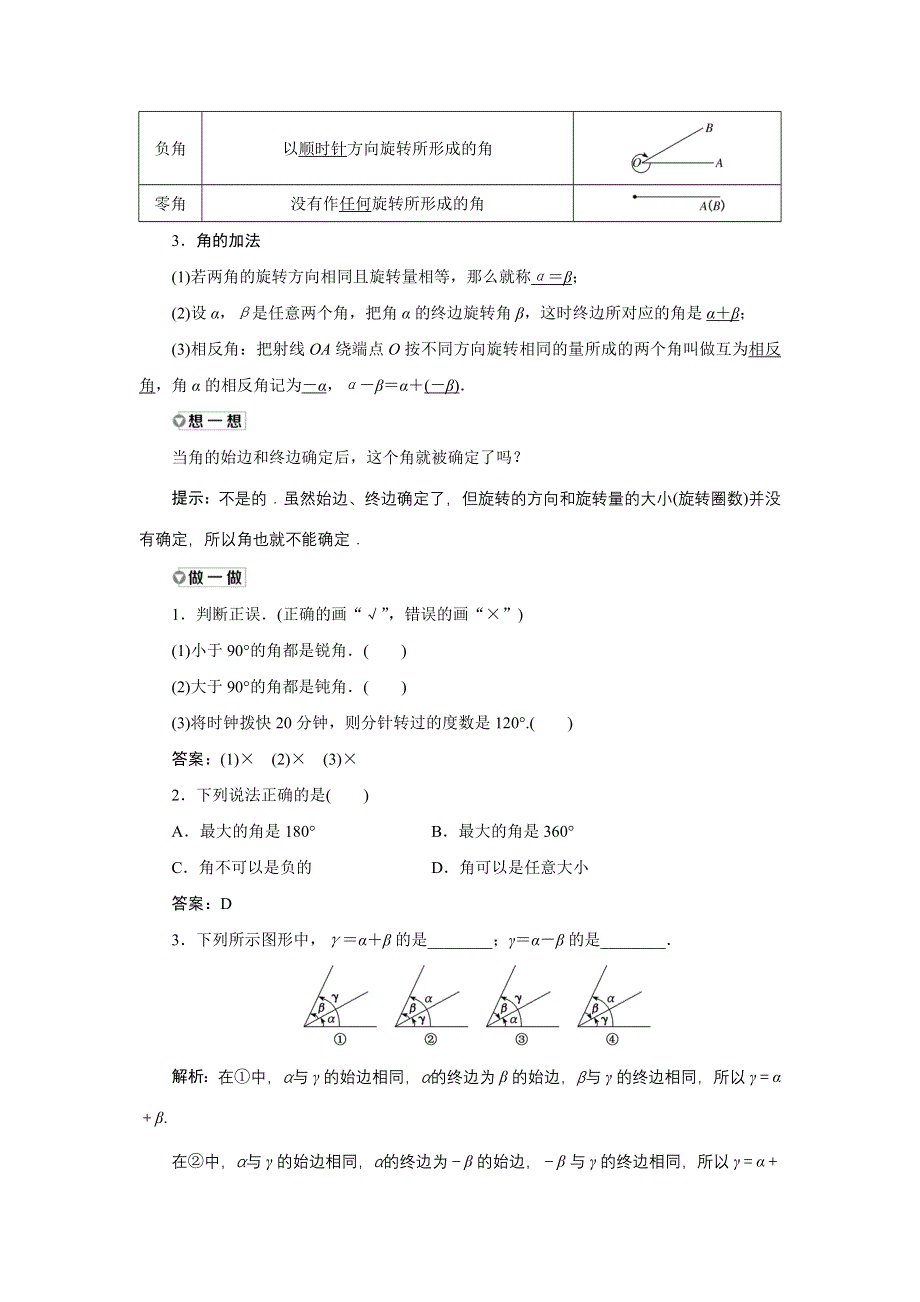 负角
以顺时针方向旋转所形成的角
B
O
A
零角
没有作任何旋转所形成的角
A(B)
3．角的加法
(1)若两角的旋转方向相同且旋转量相等，那么就称α＝β；
(2)设 α，β是任意两个角，把角 α 的终边旋转角 β，这时终边所对应的角是 α＋β；
(3)相反角：把射线 OA 绕端点 O 按不同方向旋转相同的量所成的两个角叫做互为相反
角，角 α 的相反角记为－α，α－β＝α＋(－β)．
想一想
当角的始边和终边确定后，这个角就被确定了吗？
提示：不是的．虽然始边、终边确定了，但旋转的方向和旋转量的大小(旋转圈数)并没
有确定，所以角也就不能确定．
做一做
1．判断正误．(正确的画“√”，错误的画“×”)
(1)小于 90°的角都是锐角．(　　)
(2)大于 90°的角都是钝角．(　　)
(3)将时钟拨快 20 分钟，则分针转过的度数是 120°.(　　)
答案：(1)×　(2)×　(3)×
2．下列说法正确的是(　　)
A．最大的角是 180°　　B．最大的角是 360°
C．角不可以是负的　　D．角可以是任意大小
答案：D
3．下列所示图形中，γ＝α＋β 的是________；γ＝α－β 的是________．
γ β α　α β γ　γ β α　α β γ
①　②　③　④
解析：在①中，α与 γ 的始边相同，α的终边为 β 的始边，β与 γ 的终边相同，所以 γ＝α
＋β.
在②中，α与 γ 的始边相同，α的终边为－β 的始边，－β 与 γ 的终边相同，所以 γ＝α＋